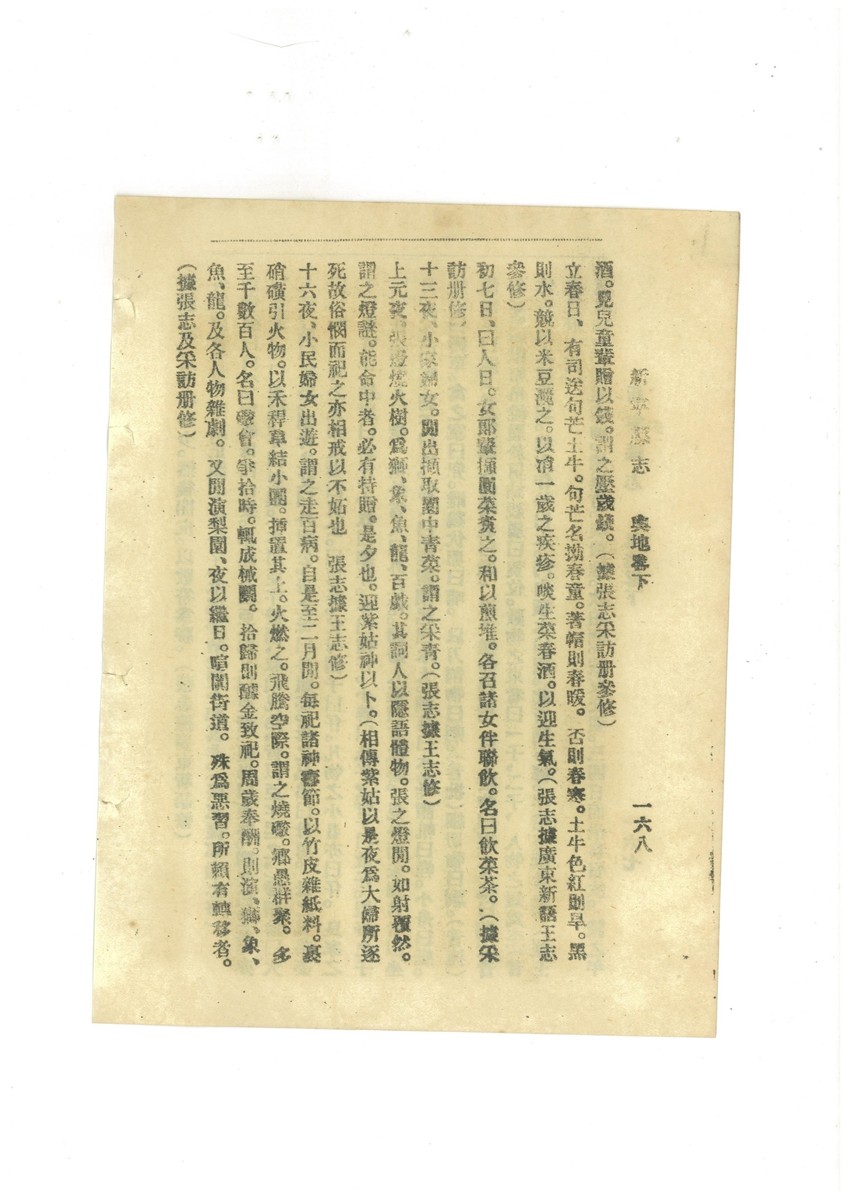 新寧縣志　輿地畧下　一六八
酒。見兒童輩贈以錢。謂之壓歲錢。（據張志采訪册參修）
立春日、有司送句芒土牛。句芒名拗春童。著帽則春暖。否則春寒。土牛色紅則旱。黑
則水。競以米豆灑之。以消一歲之疾疹。啖生菜春酒。以迎生氣。（張志據廣東新語王志
參修）
初七日、曰人日。女郎輩擷園菜煑之。和以煎堆。各召諸女伴聯飲。名曰飲菜茶。（據采
訪册修）
十三夜、小家婦女。閒出擷取園中青菜。謂之采青。（張志據王志修）
上元夜。張燈燒火樹。爲獅、象、魚、龍、百戯。其詞人以隱語體物。張之燈閒。如射覆然。
謂之燈謎。能命中者。必有持贈。是夕也。迎紫姑神以卜。（相傳紫姑以是夜爲大婦所逐
死故俗憫而祀之亦相戒以不妬也　張志據王志修）
十六夜、小民婦女出遊。謂之走百病。自是至二月閒。每祀諸神喜節。以竹皮雜紙料。裹
硝磺引火物。以禾稈草結小圈。揷置其上。火燃之。飛騰空際。謂之燒礮。鄉愚群聚。多
至千數百人。名曰礮會。爭拾時。輒成械鬭。拾歸則醵金致祀。周歲奉酬。則演、獅、象、
魚、龍。及各人物雜劇。又閒演梨園、夜以繼日。喧闐街道。殊爲惡習。所賴有轉移者。
（據張志及采訪册修）